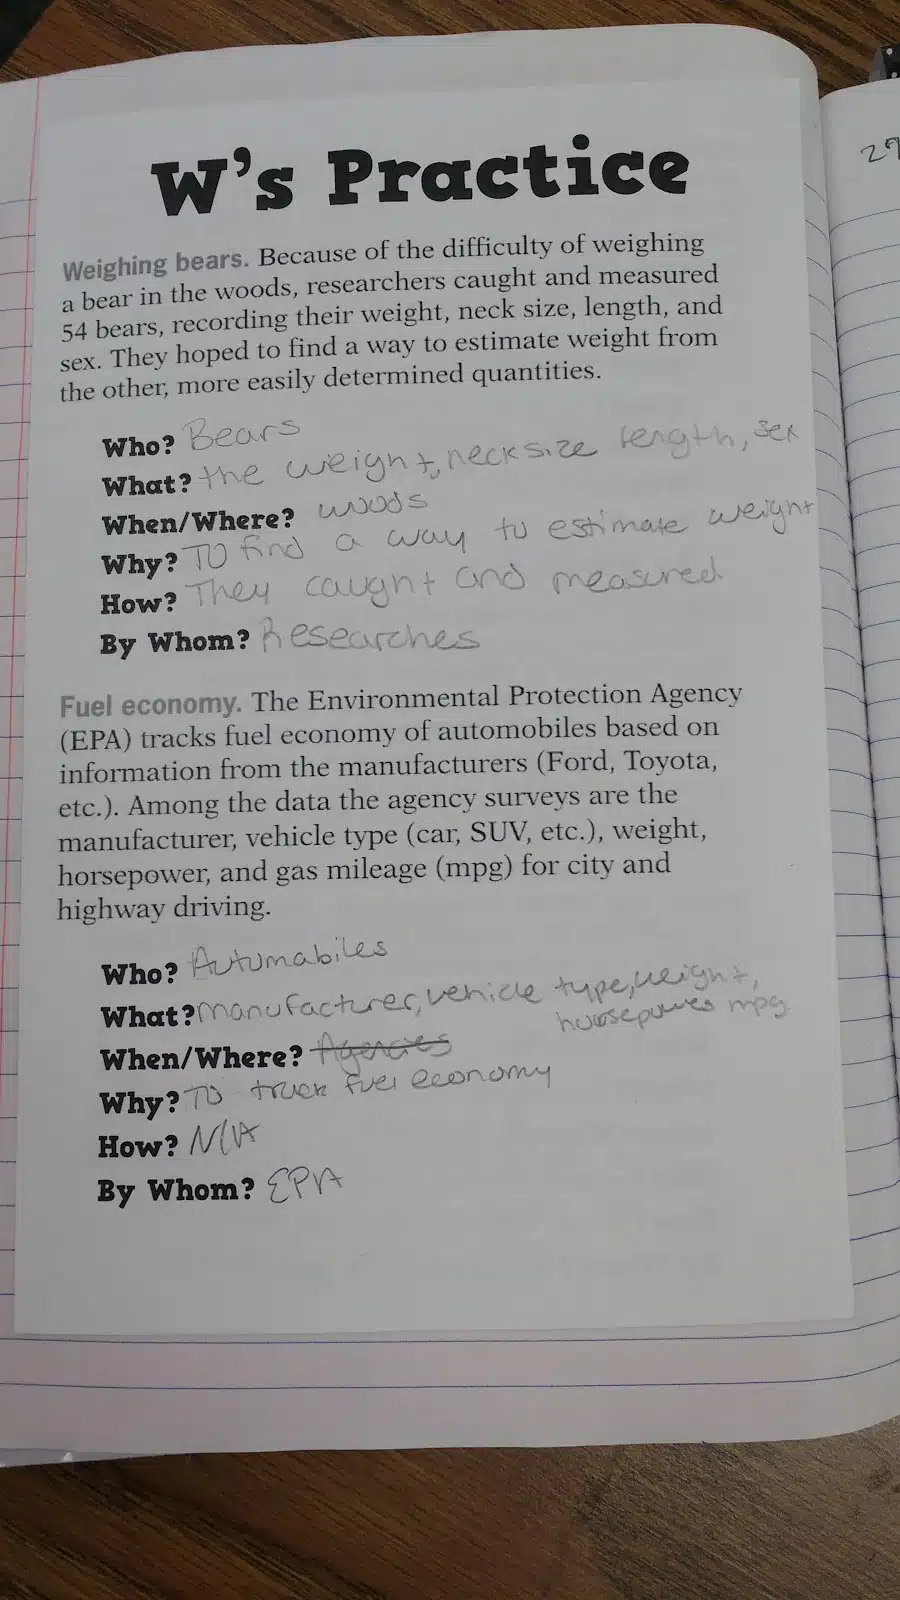 27
W's Practice
Weighing bears. Because of the difficulty of weighing
a bear in the woods, researchers caught and measured
54 bears, recording their weight, neck size, length, and
sex. They hoped to find a way to estimate weight from
the other, more easily determined quantities.
Who? Bears
What? the weight, neck size length, sex
When/Where? woods
Why? TO find a way to estimate weight
How? They caught and measured
By Whom? Researches
Fuel economy. The Environmental Protection Agency
(EPA) tracks fuel economy of automobiles based on
information from the manufacturers (Ford, Toyota,
etc.). Among the data the agency surveys are the
manufacturer, vehicle type (car, SUV, etc.), weight,
horsepower, and gas mileage (mpg) for city and
highway driving.
Who? Automabiles
What? manufacturer, vehicle type, weight,
horsepower mpg
When/Where? Agencies
Why? TO track fuel economy
How? N/A
By Whom? EPA